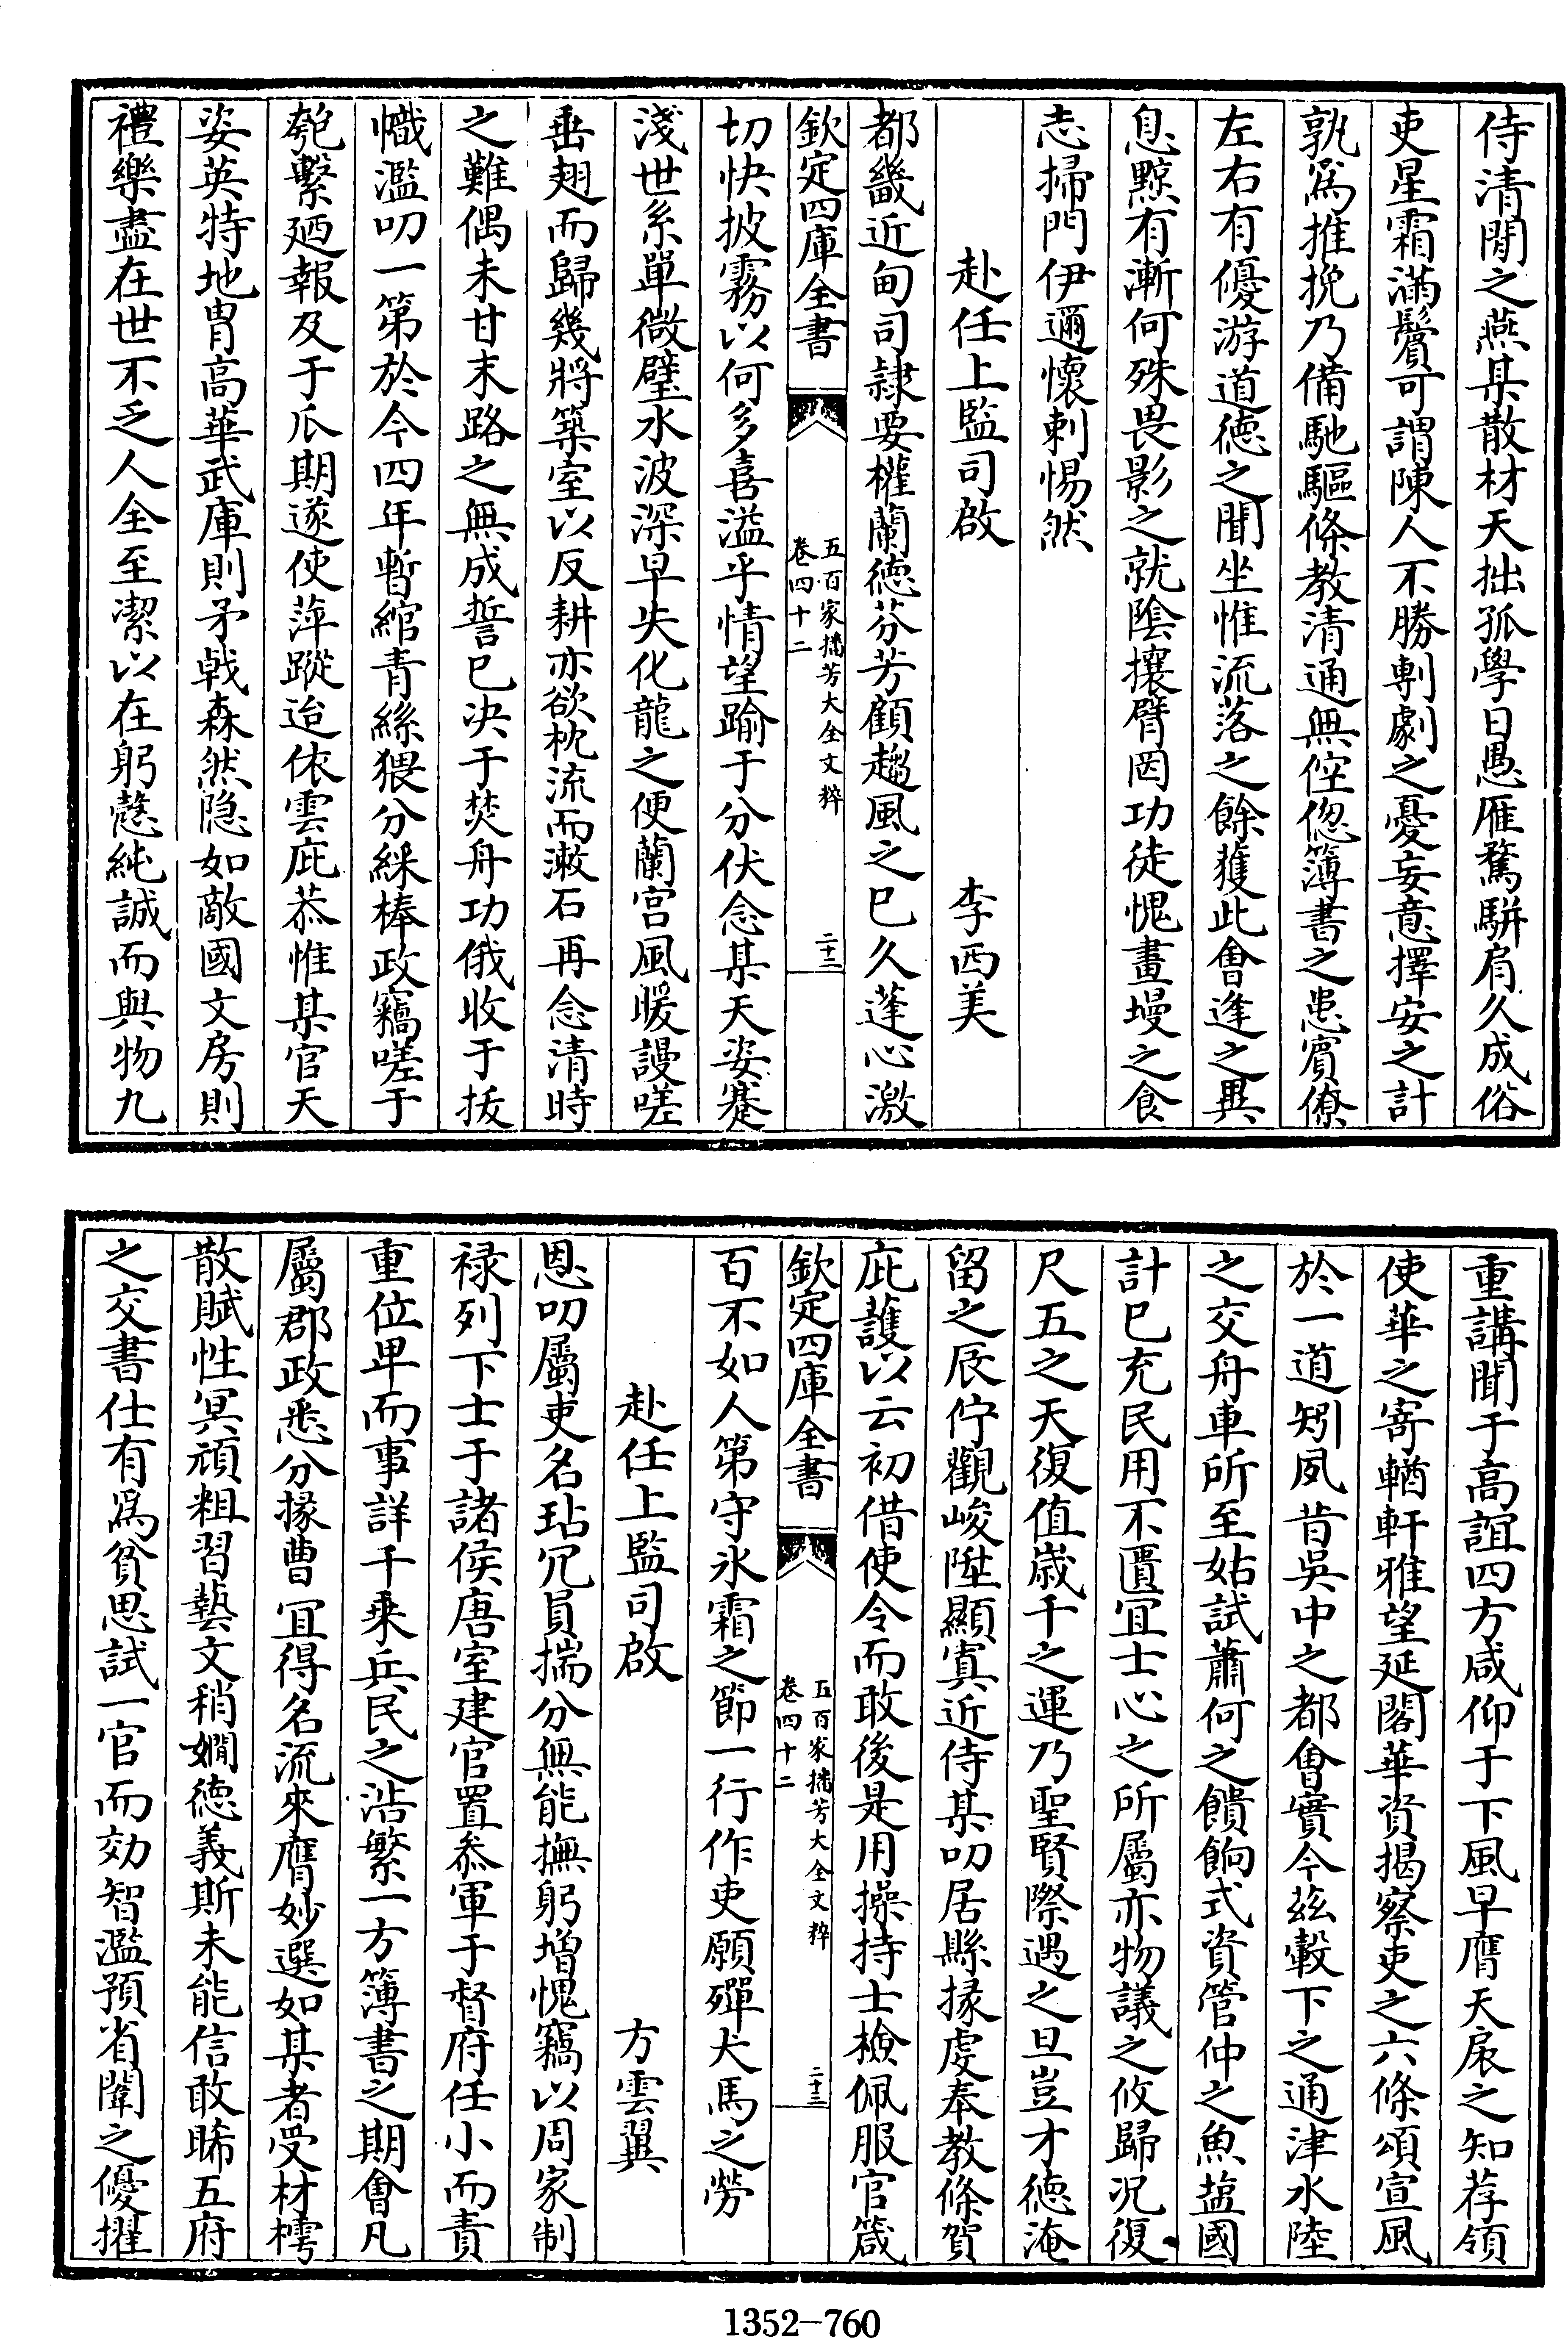 侍清閒之燕某散材天拙孤學日愚雁鶩駢肩久成俗
吏星霜滿鬢可謂陳人不勝剸劇之憂妄意擇安之計
孰爲推挽乃備馳驅條教清通無倥偬簿書之患賓僚
左右有優游道德之聞坐惟流落之餘獲此會逢之異
息黥有漸何殊畏影之就陰攘臂罔功徒愧畫墁之食
志掃門伊邇懷刺惕然
赴任上監司啟　李西美
都畿近甸司隷要權蘭德芬芳顧趨風之已久蓬心激
欽定四庫全書　五百家播芳大全文粹　卷四十二　二十二
切快披霧以何多喜溢乎情望踰于分伏念某天姿蹇
淺世系單微璧水波深早失化龍之便蘭宫風暖謾嗟
垂翅而歸幾將築室以反耕亦欲枕流而漱石再念清時
之難偶未甘末路之無成誓已决于焚舟功俄收于拔
幟濫叨一第於今四年暫綰青絲猥分綵棒政竊嗟于
匏繫廼報及于瓜期遂使萍蹤迨依雲庇恭惟某官天
姿英特地胄高華武庫則矛戟森然隐如敵國文房則
禮樂盡在世不乏人全至潔以在躬慤純誠而與物九
重講聞于高誼四方咸仰于下風早膺天扆之知荐領
使華之寄輶軒雅望延閣華資揭察吏之六條頌宣風
於一道矧夙昔吳中之都會實今兹轂下之通津水陸
之交舟車所至姑試蕭何之饋餉式資管仲之魚塩國
計已充民用不匱冝士心之所屬亦物議之攸歸况復
尺五之天復值歳千之運乃聖賢際遇之旦豈才德淹
留之辰佇觀峻陞顯寘近侍某叨居縣掾虔奉教條賀
庇䕶以云初借使令而敢後是用操持士檢佩服官箴
欽定四庫全書　五百家播芳大全文粹　卷四十二　二十三
百不如人第守氷霜之節一行作吏願殫犬馬之勞
赴任上監司啟　方雲翼
恩叨屬吏名玷冗員揣分無能撫躬增愧竊以周家制
禄列下士于諸侯唐室建官置叅軍于督府任小而責
重位卑而事詳千乗兵民之浩繁一方簿書之期會凡
屬郡政悉分掾曹冝得名流來膺妙選如某者受材樗
散賦性冥頑粗習藝文稍嫺德義斯未能信敢睎五府
之交書仕有爲貧思試一官而効智濫預省闈之優擢
1352-760